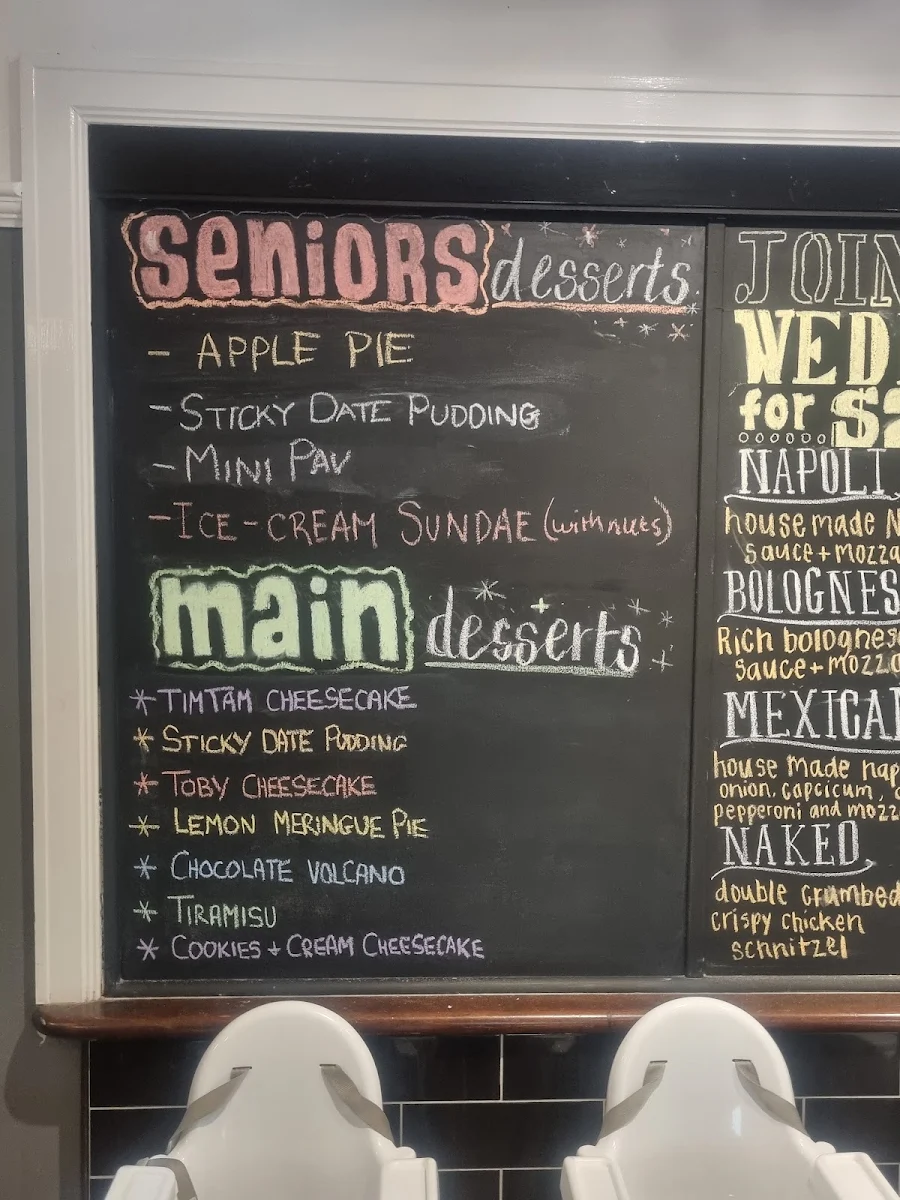 SENIORS desserts
- APPLE PIE
- STICKY DATE PUDDING
- MINI PAV
- ICE-CREAM SUNDAE (with nuts)
main desserts
* TIMTAM CHEESECAKE
* STICKY DATE PUDDING
* TOBY CHEESECAKE
* LEMON MERINGUE PIE
* CHOCOLATE VOLCANO
* TIRAMISU
* COOKIES + CREAM CHEESECAKE
JOIN
WED
for $2
NAPOLI
house made N
sauce + mozza
BOLOGNES
Rich bolognes
sauce + mozza
MEXICAN
house made nap
onion, capcicum,
pepperoni and mozz
NAKED
double crumbed
crispy chicken
schnitzel